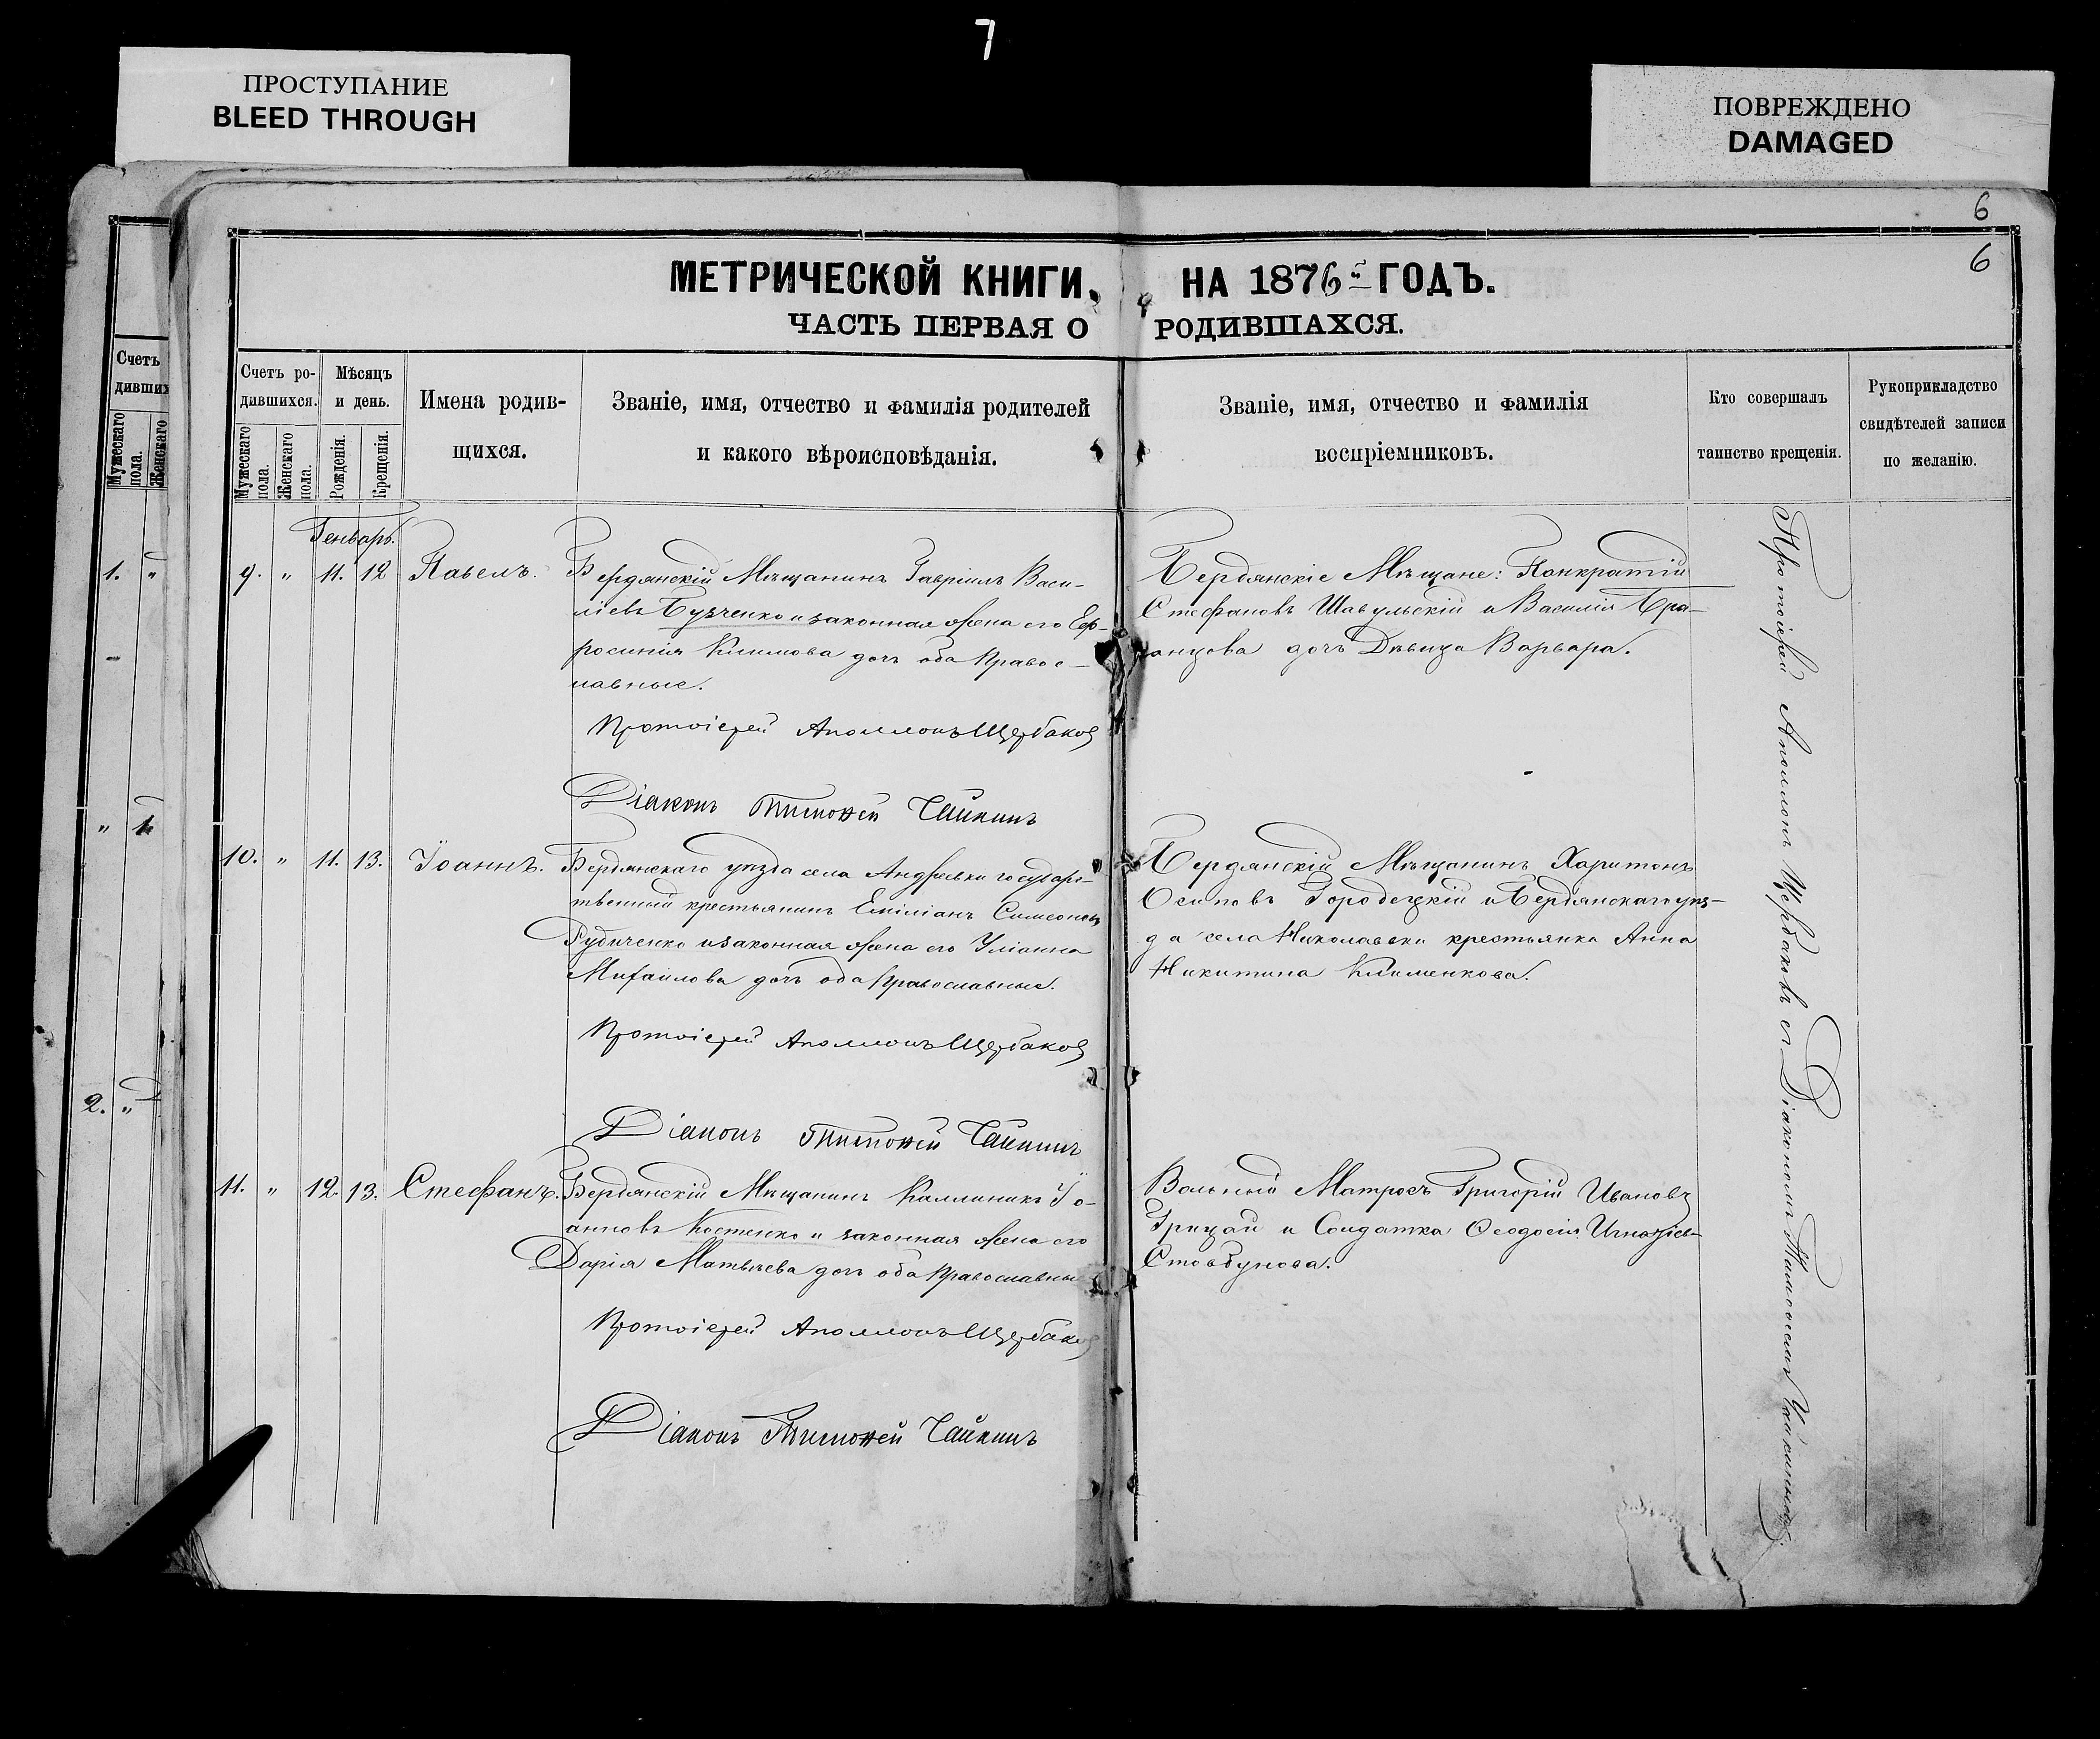 7
ПРОСТУПАНИЕ
BLEED THROUGH
ПОВРЕЖДЕНО
DAMAGED
6
6
МЕТРИЧЕСКОЙ КНИГИ, НА 1876 й ГОДЪ.
ЧАСТЬ ПЕРВАЯ О РОДИВШАХСЯ.
Счетъ
дивших
Мужескаго пола.
Женскаго
1. "
" 1.
2. "
Счетъ ро-
дившихся.
Мужескаго пола.
Женскаго пола.
Мѣсяцъ
и день.
Рожденія.
Крещенія.
Имена родив-
щихся.
Званіе, имя, отчество и фамилія родителей
и какого вѣроисповѣданія.
Званіе, имя, отчество и фамилія
воспріемниковъ.
Кто совершалъ
таинство крещенія.
Рукоприкладство
свидѣтелей записи
по желанію.
Генварь.
9. " 11. 12 Павелъ.
Бердянскій Мѣщанинъ Гавріилъ Васи-
ліевъ Бузченко и законная жена его Еф-
росинія Климова дочь оба Правос-
лавные.
Протоіерей Аполлонъ Щербаковъ
Діаконъ Тимоѳей Чайкинъ
Бердянскіе Мѣщане: Панкратій
Стефановъ Шавульскій и Василія
дочь Дѣвица Варвара.
10. " 11. 13. Іоаннъ.
Бердянскаго уѣзда села Андреевки государс-
твенный крестьянинъ Емиліанъ Симеоновъ
Рудиченко и законная жена его Уліанна
Михайлова дочь оба Православные.
Протоіерей Аполлонъ Щербаковъ
Діаконъ Тимоѳей Чайкинъ
Бердянскій Мѣщанинъ Харитонъ
Осиповъ Городецкій и Бердянскаго уѣз-
да села Николаевки крестьянка Анна
Никитина Клименкова.
11. " 12. 13. Стефанъ.
Бердянскій Мѣщанинъ Каллиникъ Іо-
анновъ Костенко и законная жена его
Дарія Матвѣева дочь оба Православны
Протоіерей Аполлонъ Щербаковъ
Діаконъ Тимоѳей Чайкинъ
Вольный Матросъ Григорій Ивановъ
Грицай и Солдатка Ѳеодосія Игнатіев
Стовбунова.
Протоіерей Аполлонъ Щербаковъ съ Діакономъ Тимоѳеемъ Чайкинымъ.